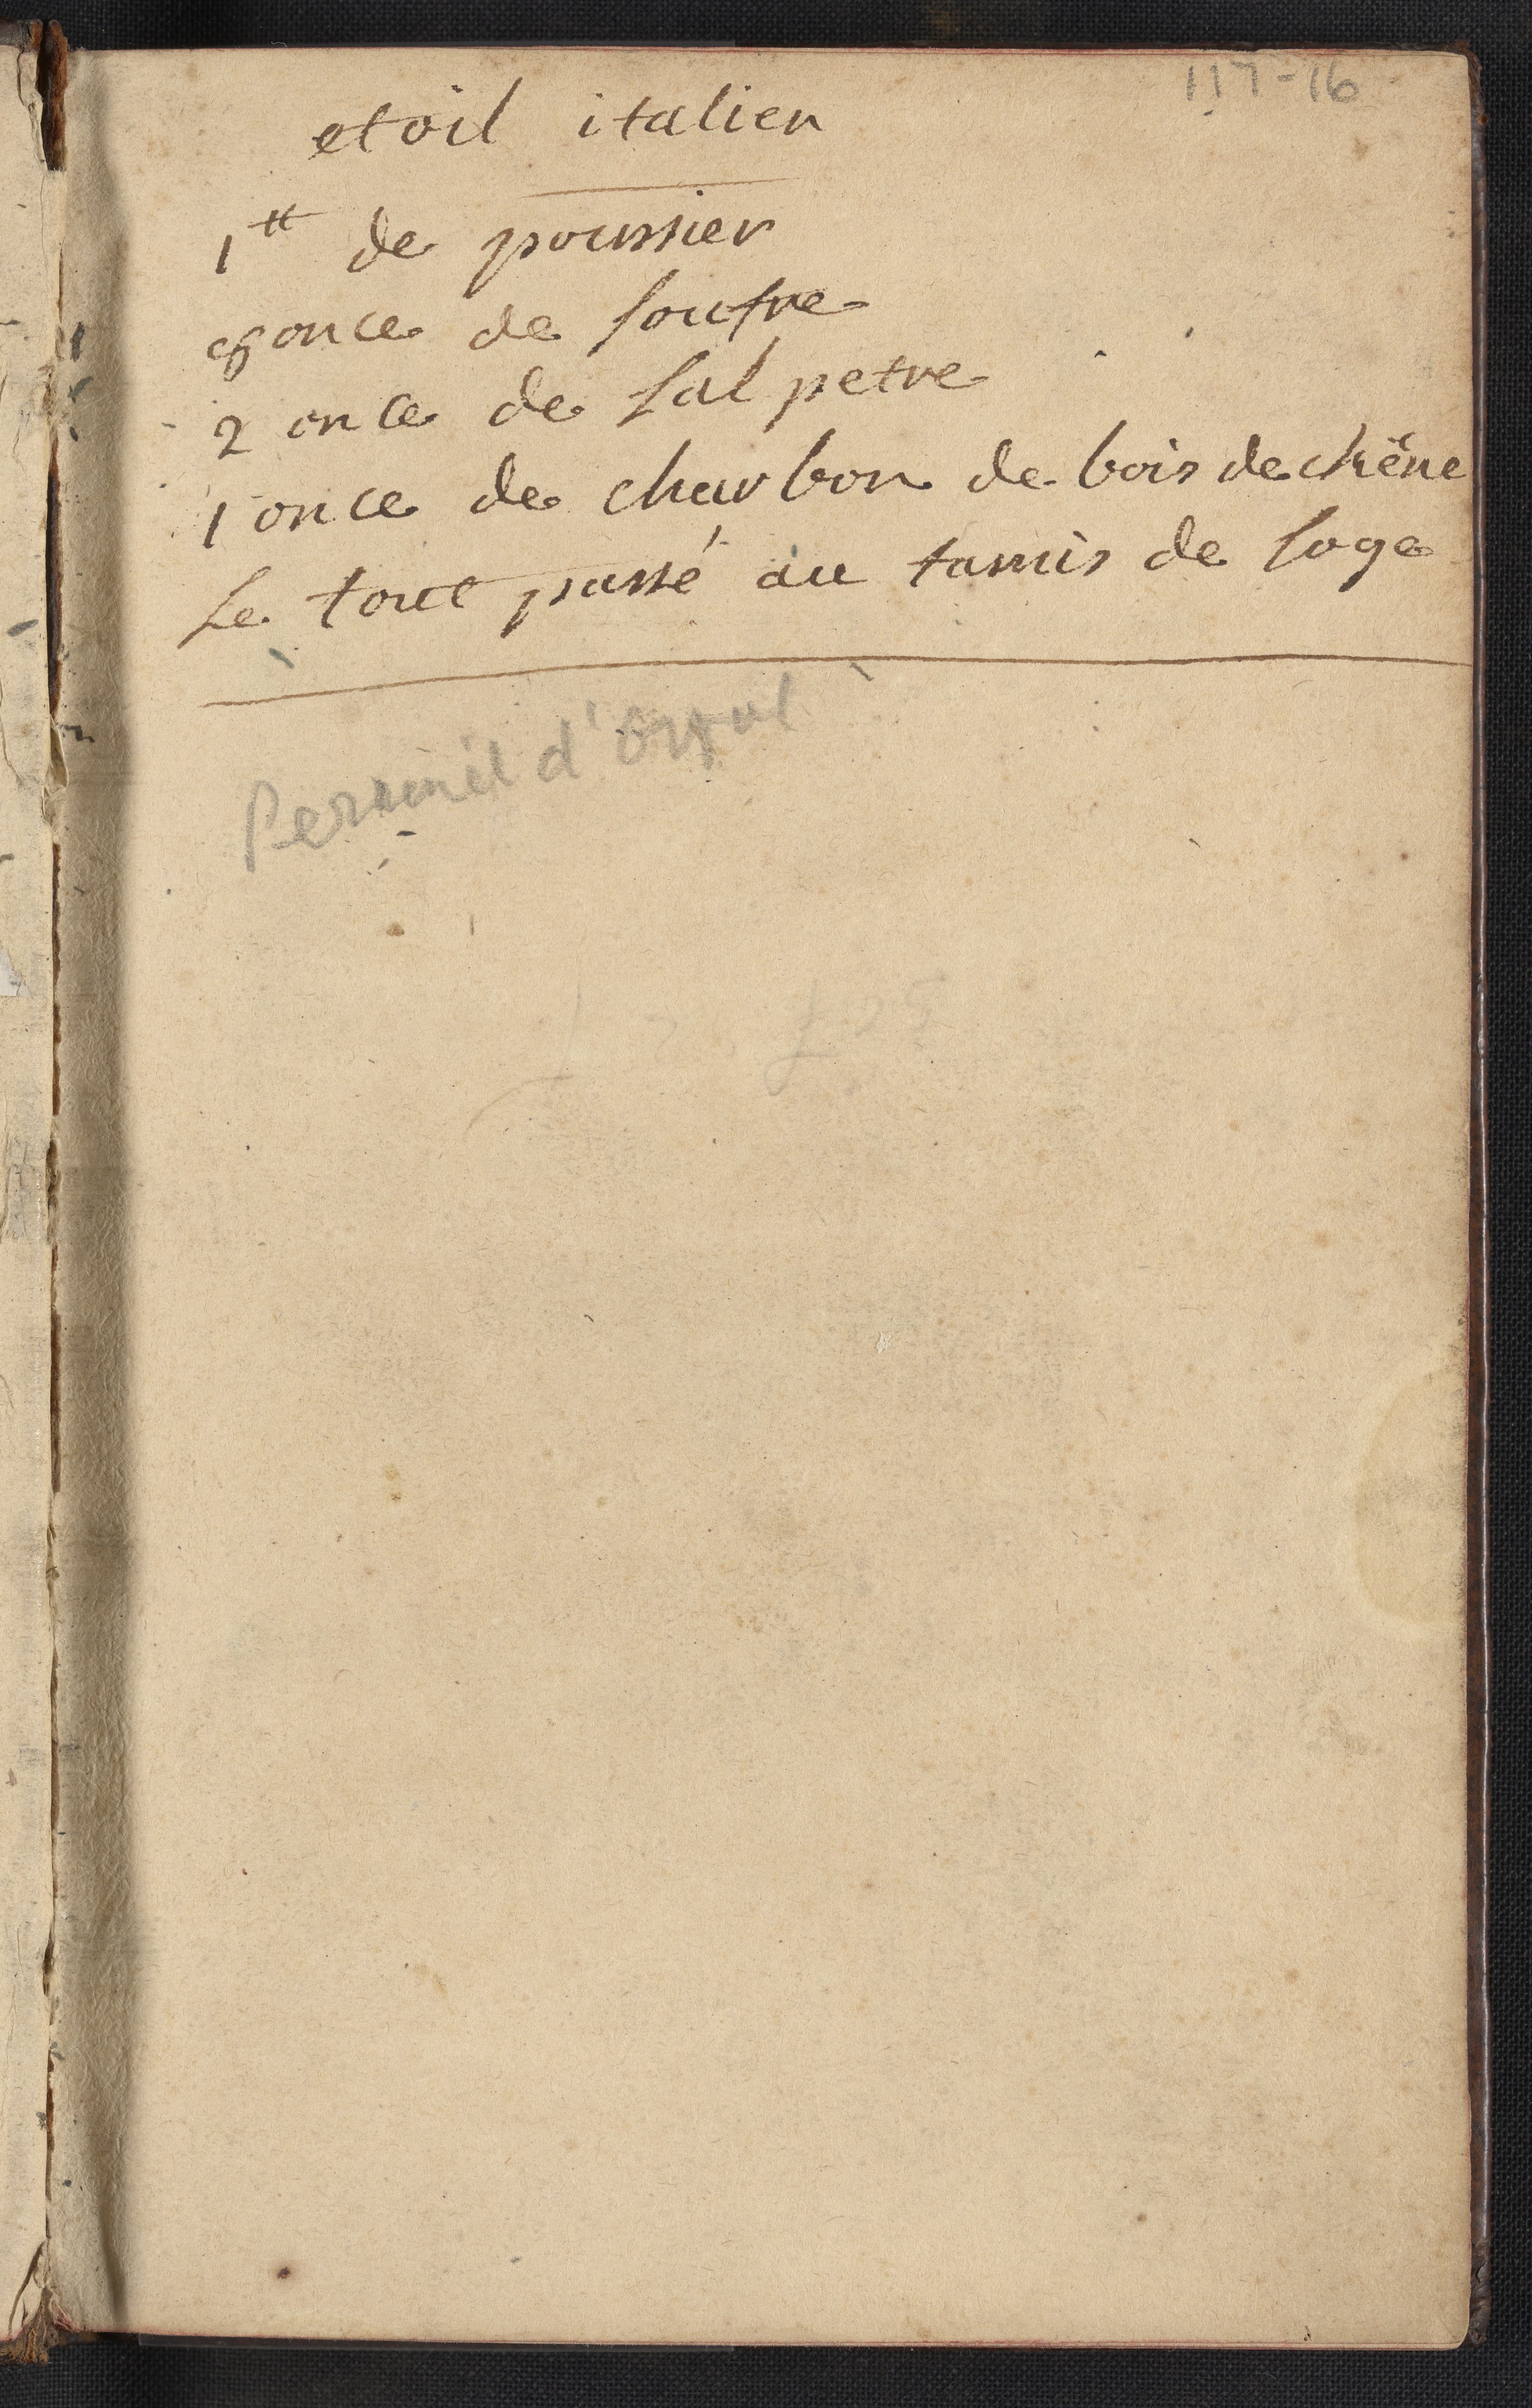 117-16
etoil italien
1 ₶ de poussier
8 once de soufre
2 once de sal petre
1 once de charbon de bois de chêne
Le tout passé au tamis de soye
d'Orval